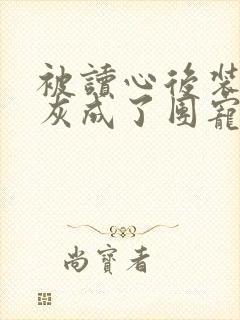 被讀心後裝
灰成了團寵
尚寶者